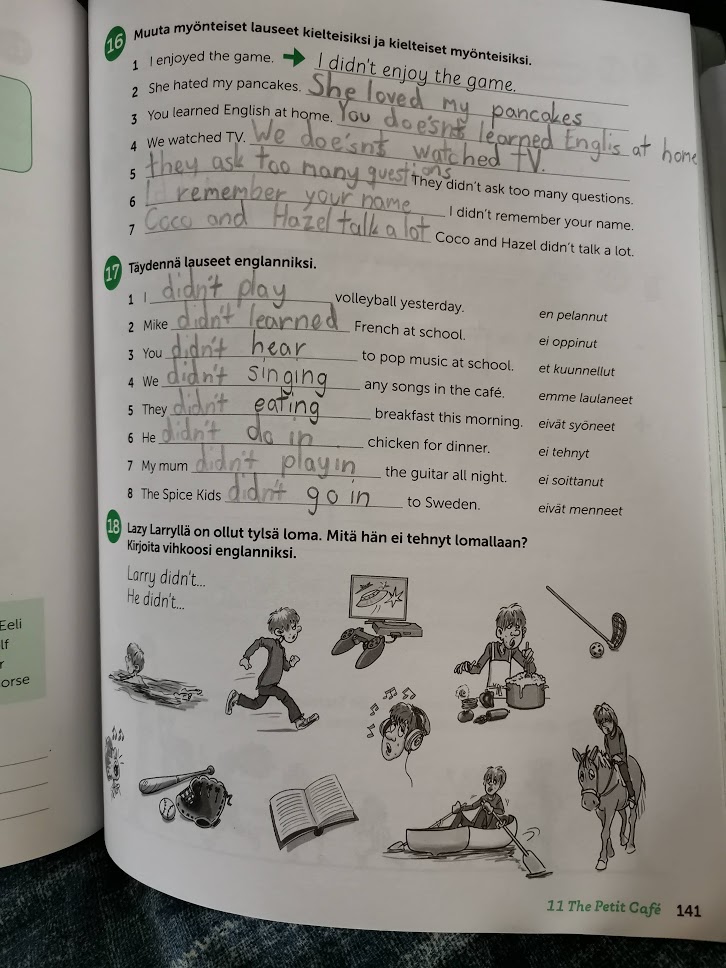 16 Muuta myönteiset lauseet kielteisiksi ja kielteiset myönteisiksi.
1 I enjoyed the game. → I didn't enjoy the game.
2 She hated my pancakes. She loved my pancakes
3 You learned English at home. You doe'snt learned Englis at home
4 We watched TV. We doe'snt watched TV.
5 they ask too many questions They didn't ask too many questions.
6 I remember your name I didn't remember your name.
7 Coco and Hazel talk a lot Coco and Hazel didn't talk a lot.
17 Täydennä lauseet englanniksi.
1 I didn't play volleyball yesterday. en pelannut
2 Mike didn't learned French at school. ei oppinut
3 You didn't hear to pop music at school. et kuunnellut
4 We didn't singing any songs in the café. emme laulaneet
5 They didn't eating breakfast this morning. eivät syöneet
6 He didn't do in chicken for dinner. ei tehnyt
7 My mum didn't playin the guitar all night. ei soittanut
8 The Spice Kids didn't go in to Sweden. eivät menneet
18 Lazy Larryllä on ollut tylsä loma. Mitä hän ei tehnyt lomallaan?
Kirjoita vihkoosi englanniksi.
Larry didn't...
He didn't...
Eeli
lf
r
orse
11 The Petit Café 141